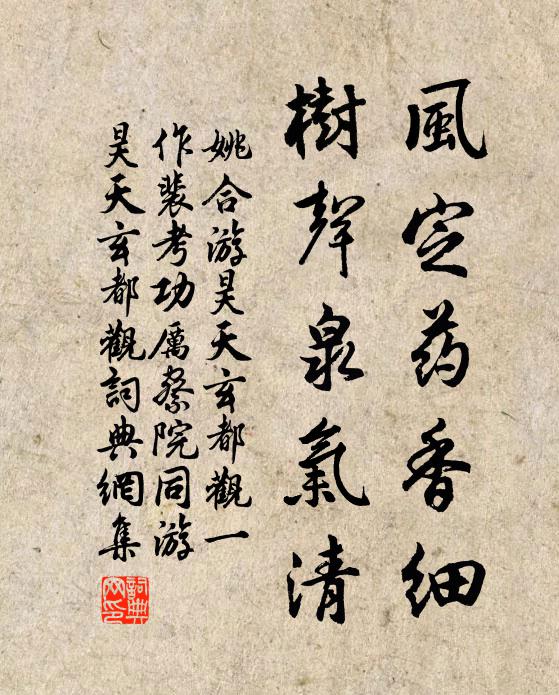 風定药香细
樹聲泉氣清
姚合游昊天玄都觀一
作裴考功厲察院同游
昊天玄都觀詞典網集
詞典网印